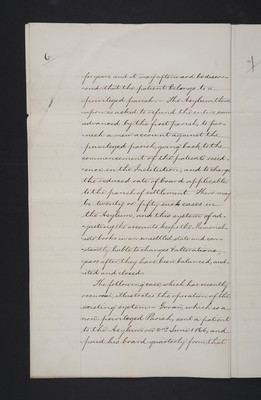 6
for years and it may afterward be discov-
ered that the patient belongs to a
privileged parish. The Asylum then
upon is asked to refund the extra sum
advanced by the first parish, to fur-
nish a new account against the
privileged parish going back to the
commencement of the patient's resid-
ence in the Institution, and to charge
the reduced rate of board applicable
to the parish of settlement. There may
be twenty or fifty such cases in
the Asylum, and this system of ad-
justing the accounts keeps the
books in an unsettled state and con-
stantly liable to changes & alterations,
years after they have been balanced, aud-
ited and closed.
The following case which has recently
occurred illustrates the operation of the
existing system. Govan which is a
non privileged Parish, sent a patient
to the Asylum on 2nd June 1866, and
paid his board quarterly from that